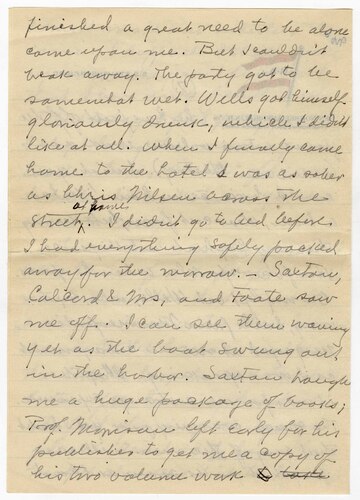 finished a great need to be alone
came upon me. But I couldn't
break away. The party got to be
somewhat wet. Wells got himself
gloriously drunk, which I didn't
like at all. When I finally came
home to the hotel I was as sober
as Chris Nilsen across the
street at home. I didn't go to bed before
I had everything safely packed
away for the morrow. – Saxton,
Calcord & Mrs, and Foote saw
me off. I can see them waving
yet as the boat swung out
in the harbor. Saxton bought
me a huge package of books;
Prof. Morison left early for his
publisher to get me a copy of
his two volume work